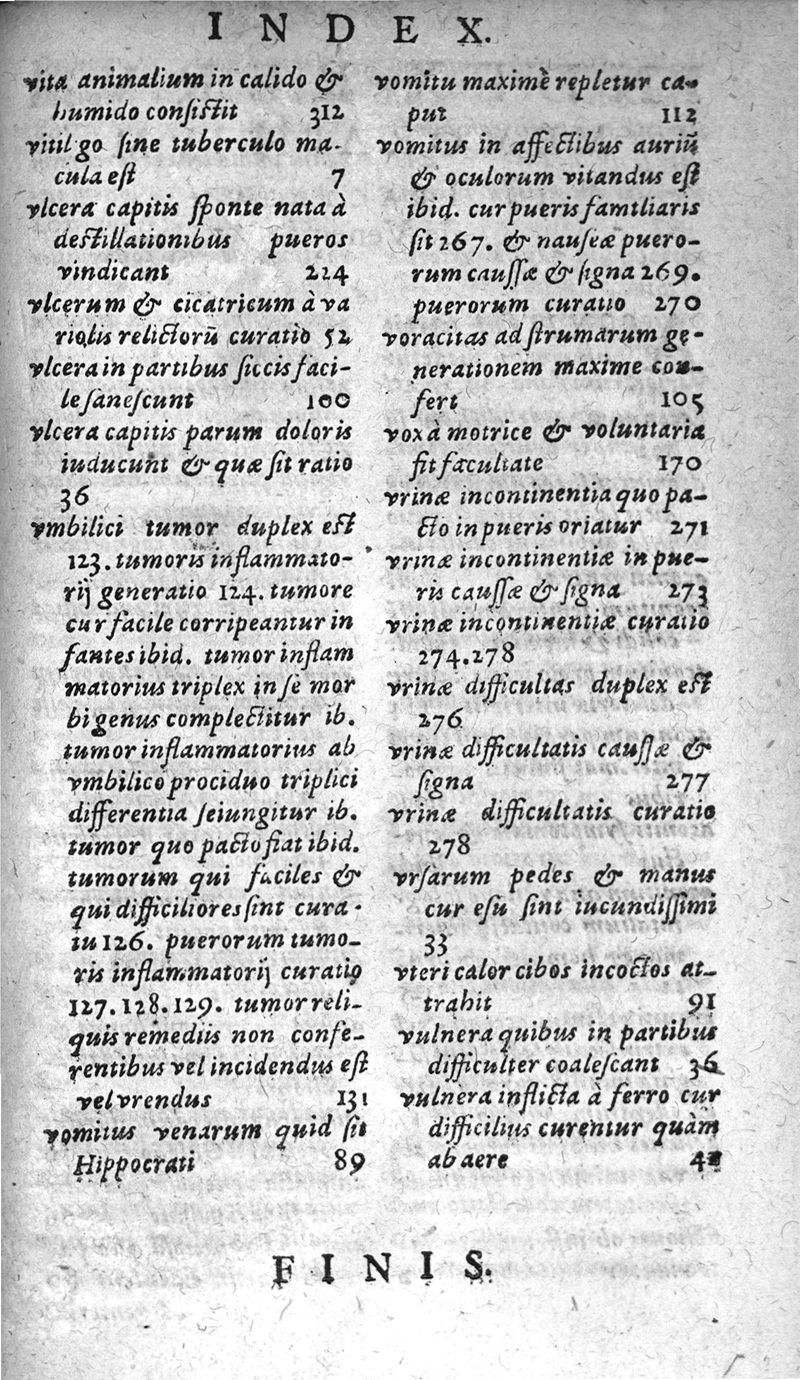 INDEX.
vita animalium in calido &
humido consistit 312
vitilgo sine tuberculo ma-
cula est 7
vlcera capitis sponte nata à
destillationibus pueros
vindicant 224
vlcerum & cicatricum à va
riolis relictorũ curatio 52
vlcera in partibus siccis faci-
le sanescunt 100
vlcera capitis parum doloris
iuducunt & quæ sit ratio
36
vmbilici tumor duplex est
123. tumoris inflammato-
rij generatio 124. tumore
cur facile corripeantur in
fantes ibid. tumor inflam
matorius triplex in se mor
bi genus complectitur ib.
tumor inflammatorius ab
vmbilico prociduo triplici
differentia seiungitur ib.
tumor quo pacto fiat ibid.
tumorum qui faciles &
qui difficiliores sint cura-
tu 126. puerorum tumo-
ris inflammatorij curatio
127. 128. 129. tumor reli-
quis remediis non confe-
rentibus vel incidendus est
vel vrendus 131
vomitus venarum quid sit
Hippocrati 89
vomitu maximè repletur ca-
put 112
vomitus in affectibus auriũ
& oculorum vitandus est
ibid. cur pueris familiaris
sit 267. & nauseæ puero-
rum caussæ & signa 269.
puerorum curatio 270
voracitas ad strumarum ge-
nerationem maxime con-
fert 105
vox à motrice & voluntaria
fit facultate 170
vrinæ incontinentia quo pa-
cto in pueris oriatur 271
vrinæ incontinentiæ in pue-
ris caussæ & signa 273
vrinæ incontinentiæ curatio
274. 278
vrinæ difficultas duplex est
276
vrinæ difficultatis caussæ &
signa 277
vrinæ difficultatis curatio
278
vrsarum pedes & manus
cur esu sint iucundissimi
33
vteri calor cibos incoctos at-
trahit 91
vulnera quibus in partibus
difficulter coalescant 36
vulnera inflicta à ferro cur
difficilius curentur quàm
ab aere
FINIS.